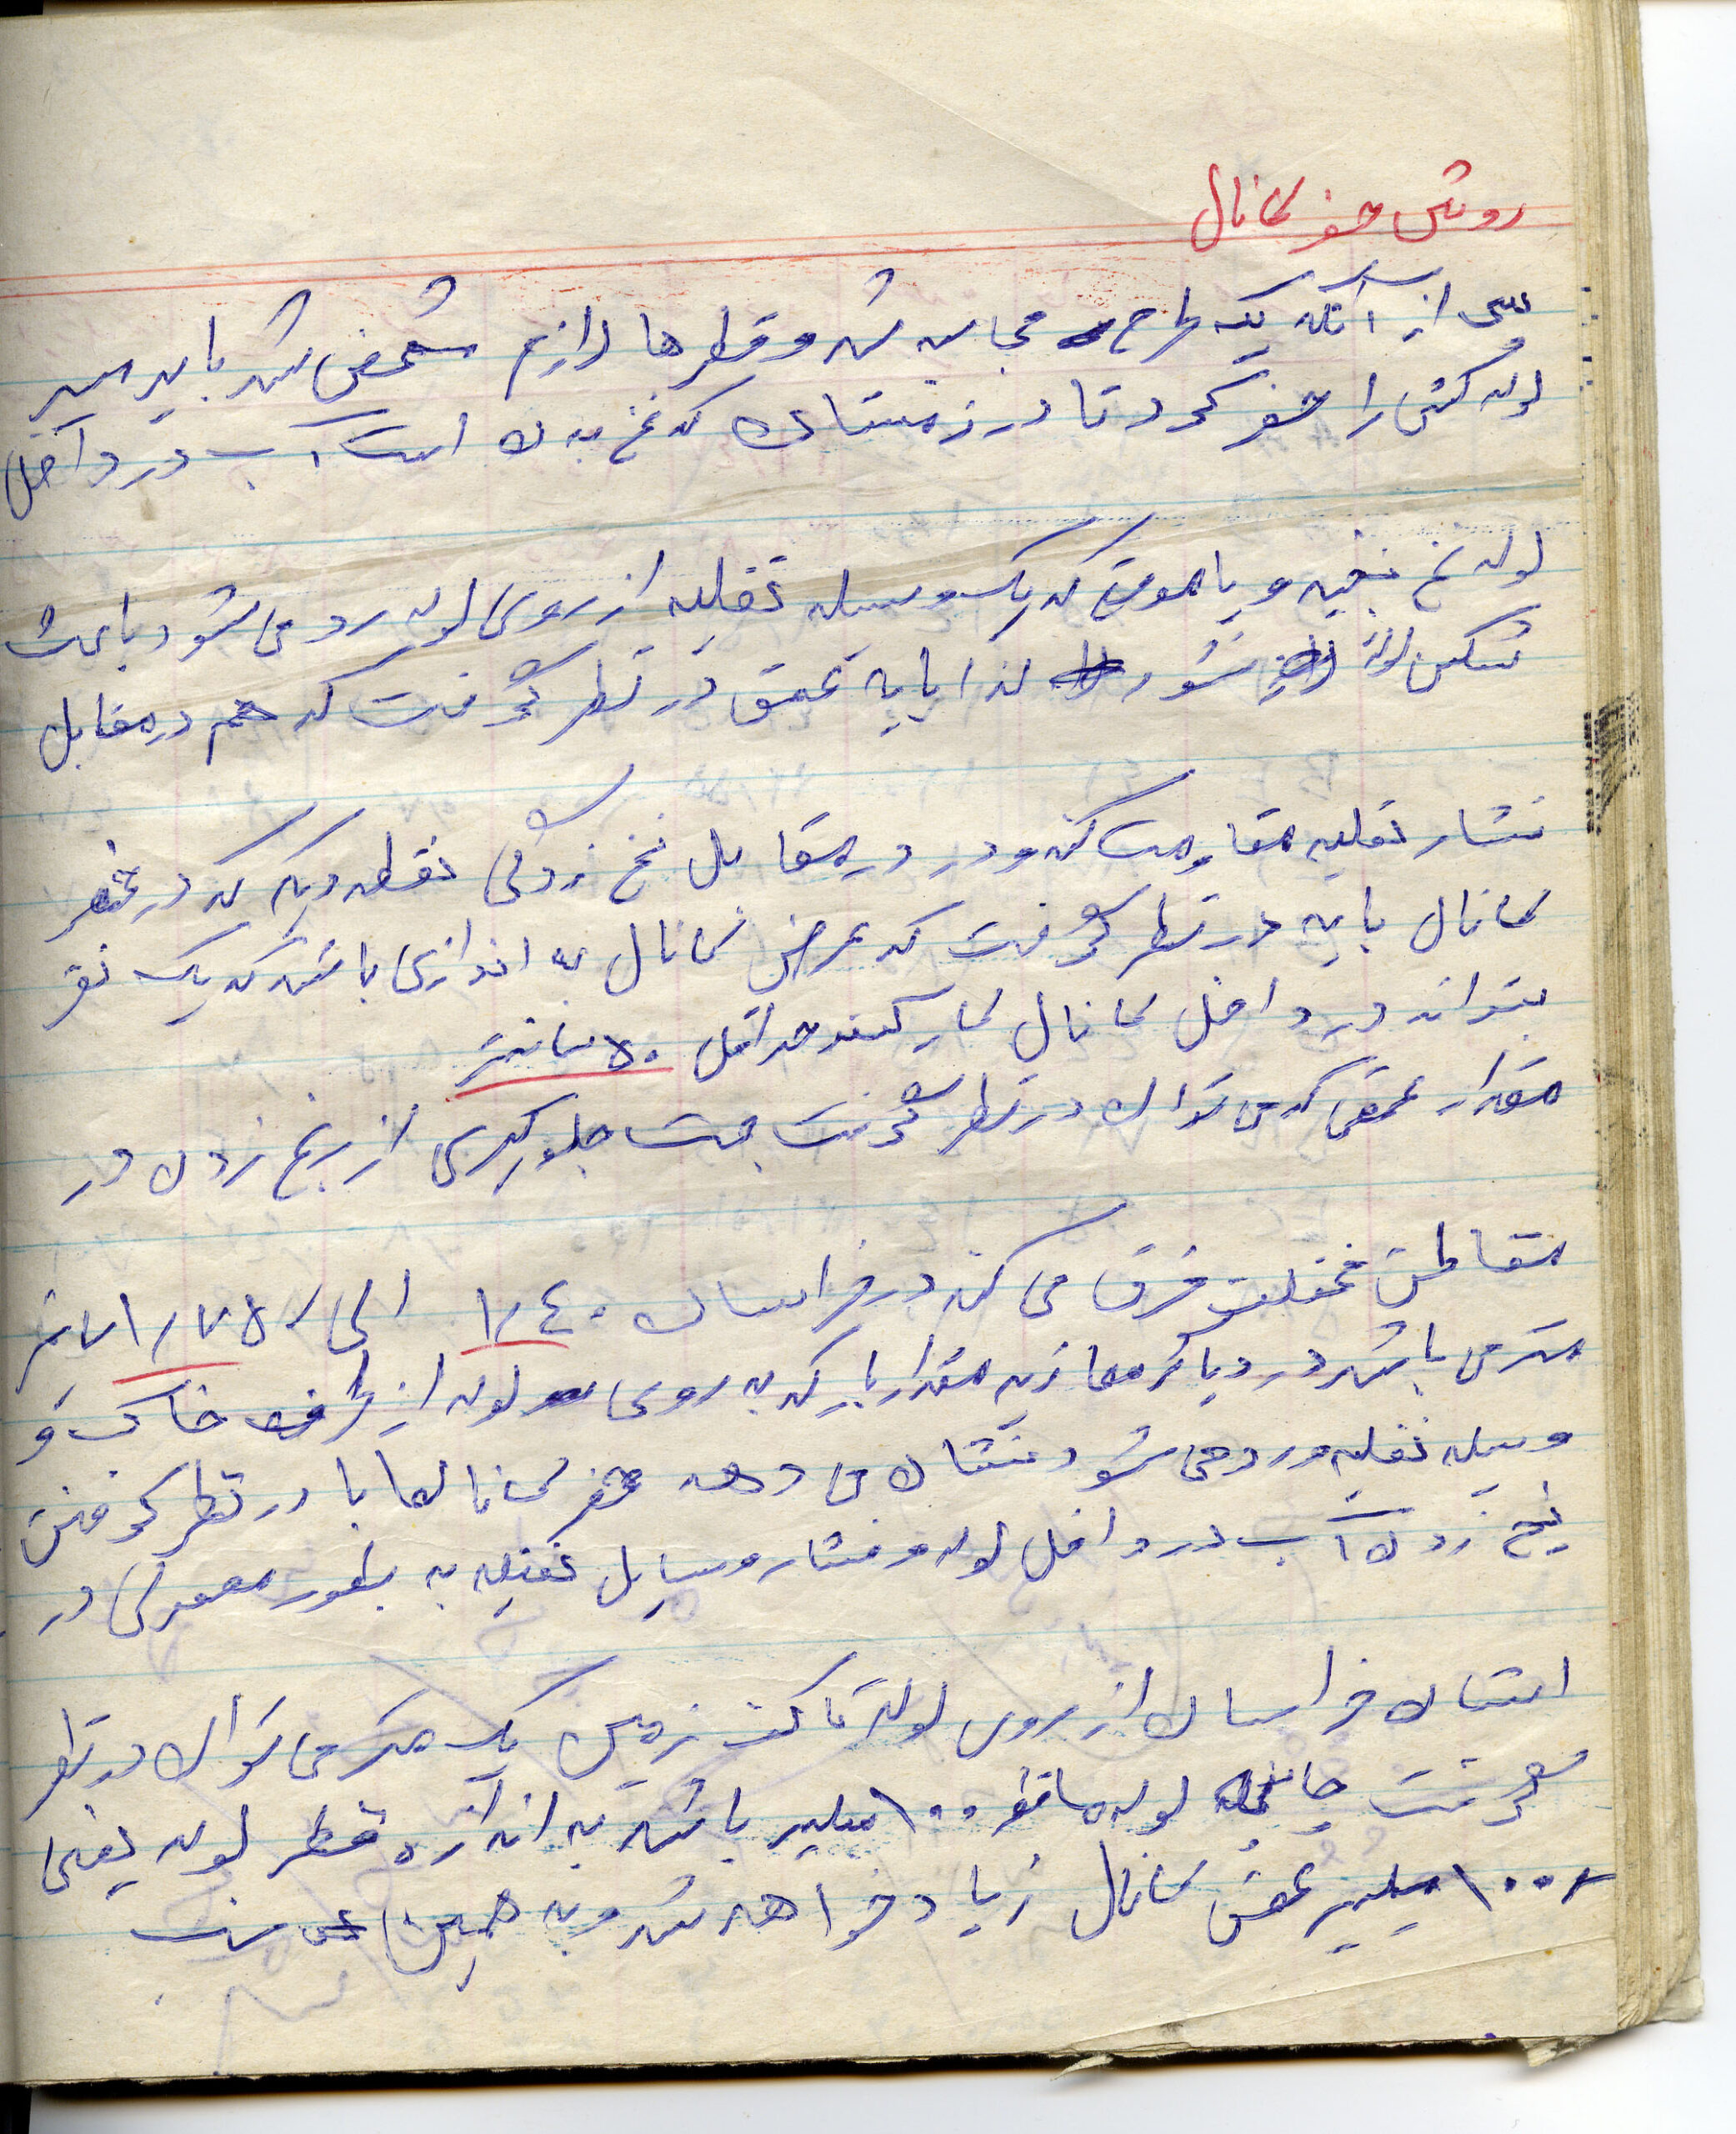 روش حفر کانال
پس از آنکه یک طرح محاسبه شد و قطرها لازم مشخص شد باید مسیر
لوله کشی را حفر کرد تا در زمستان که یخ بندان است آب در داخل
لوله یخ نبندد و یا موقعی که یک وسیله نقلیه از روی لوله رد می شود باعث
شکستن لوله نشود لذا باید عمق در نظر گرفت که هم در مقابل
فشار نقلیه مقاومت کند و در مقابل یخ زدگی نقطه دیگر که در حفر
کانال باید در نظر گرفت که عرض کانال به اندازی باشد که یک نفر
بتواند در داخل کانال کار کند حداقل ۵۰ سانتیمتر
مقدار عمقی که می توان در نظر گرفت جهت جلوگیری از یخ زدن در
مناطق مختلف فرق می کند در خراسان ۱/۴۰ الی ۱/۷۵ سانتی
متر می باشد در دیاگرام مقدار بار که به روی لوله از طرف خاک و
وسیله نقلیه وارد می شود نشان می دهد حفر کانالها با در نظر گرفتن
یخ زدن آب در داخل لوله و فشار وسایل نقلیه به بطور معمولی در
استان خراسان از روی لوله تا کف زمین یک متر می توان در نظر
گرفت چنانچه لوله ما قطر ۱۰۰ میلیمتر باشد به اندازه قطر لوله یعنی
۱۰۰ میلیمتر عمق کانال زیاد خواهد شد و به همین نسبت